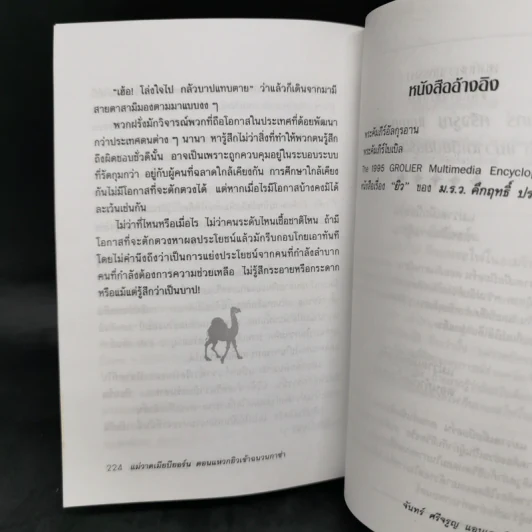 "เฮ้อ! โล่งใจไป กลัวบาปแทบตาย" ว่าแล้วก็เดินจากมามี
สายตาสามีมองตามมาแบบงง ๆ
พวกฝรั่งมักวิจารณ์พวกที่ถือโอกาสในประเทศที่ด้อยพัฒนา
กว่าประเทศตนต่าง ๆ นานา หารู้สึกไม่ว่าสิ่งที่ทำให้พวกตนรู้สึก
ถึงผิดชอบชั่วดีนั้น อาจเป็นเพราะถูกควบคุมอยู่ในระบอบระบบ
ที่รัดกุมกว่า อยู่กับผู้คนที่ฉลาดใกล้เคียงกัน การศึกษาใกล้เคียง
กันไม่มีโอกาสที่จะตักตวงได้ แต่หากเมื่อไรมีโอกาสบ้างคงมิได้
ละเว้นเช่นกัน
ไม่ว่าที่ไหนหรือเมื่อไร ไม่ว่าคนระดับไหนเชื้อชาติไหน ถ้ามี
โอกาสที่จะตักตวงหาผลประโยชน์แล้วมักรีบกอบโกยเอาทันที
โดยไม่คำนึงถึงว่าเป็นการแย่งประโยชน์จากคนที่กำลังลำบาก
คนที่กำลังต้องการความช่วยเหลือ ไม่รู้สึกระอายหรือกระดาก
หรือแม้แต่รู้สึกว่าเป็นบาป!
224 แม่วาดเมียปีผอร์น ตอนแหวกยิวเข้าฉนวนกาซ่า
หนังสืออ้างอิง
พระคัมภีร์อัลกุรอาน
พระคัมภีร์ไบเบิล
The 1995 GROLIER Multimedia Encyclop
หนังสือเรื่อง "ยิว" ของ ม.ร.ว. คึกฤทธิ์ ปร
จันทร์ ศรีจรูญ